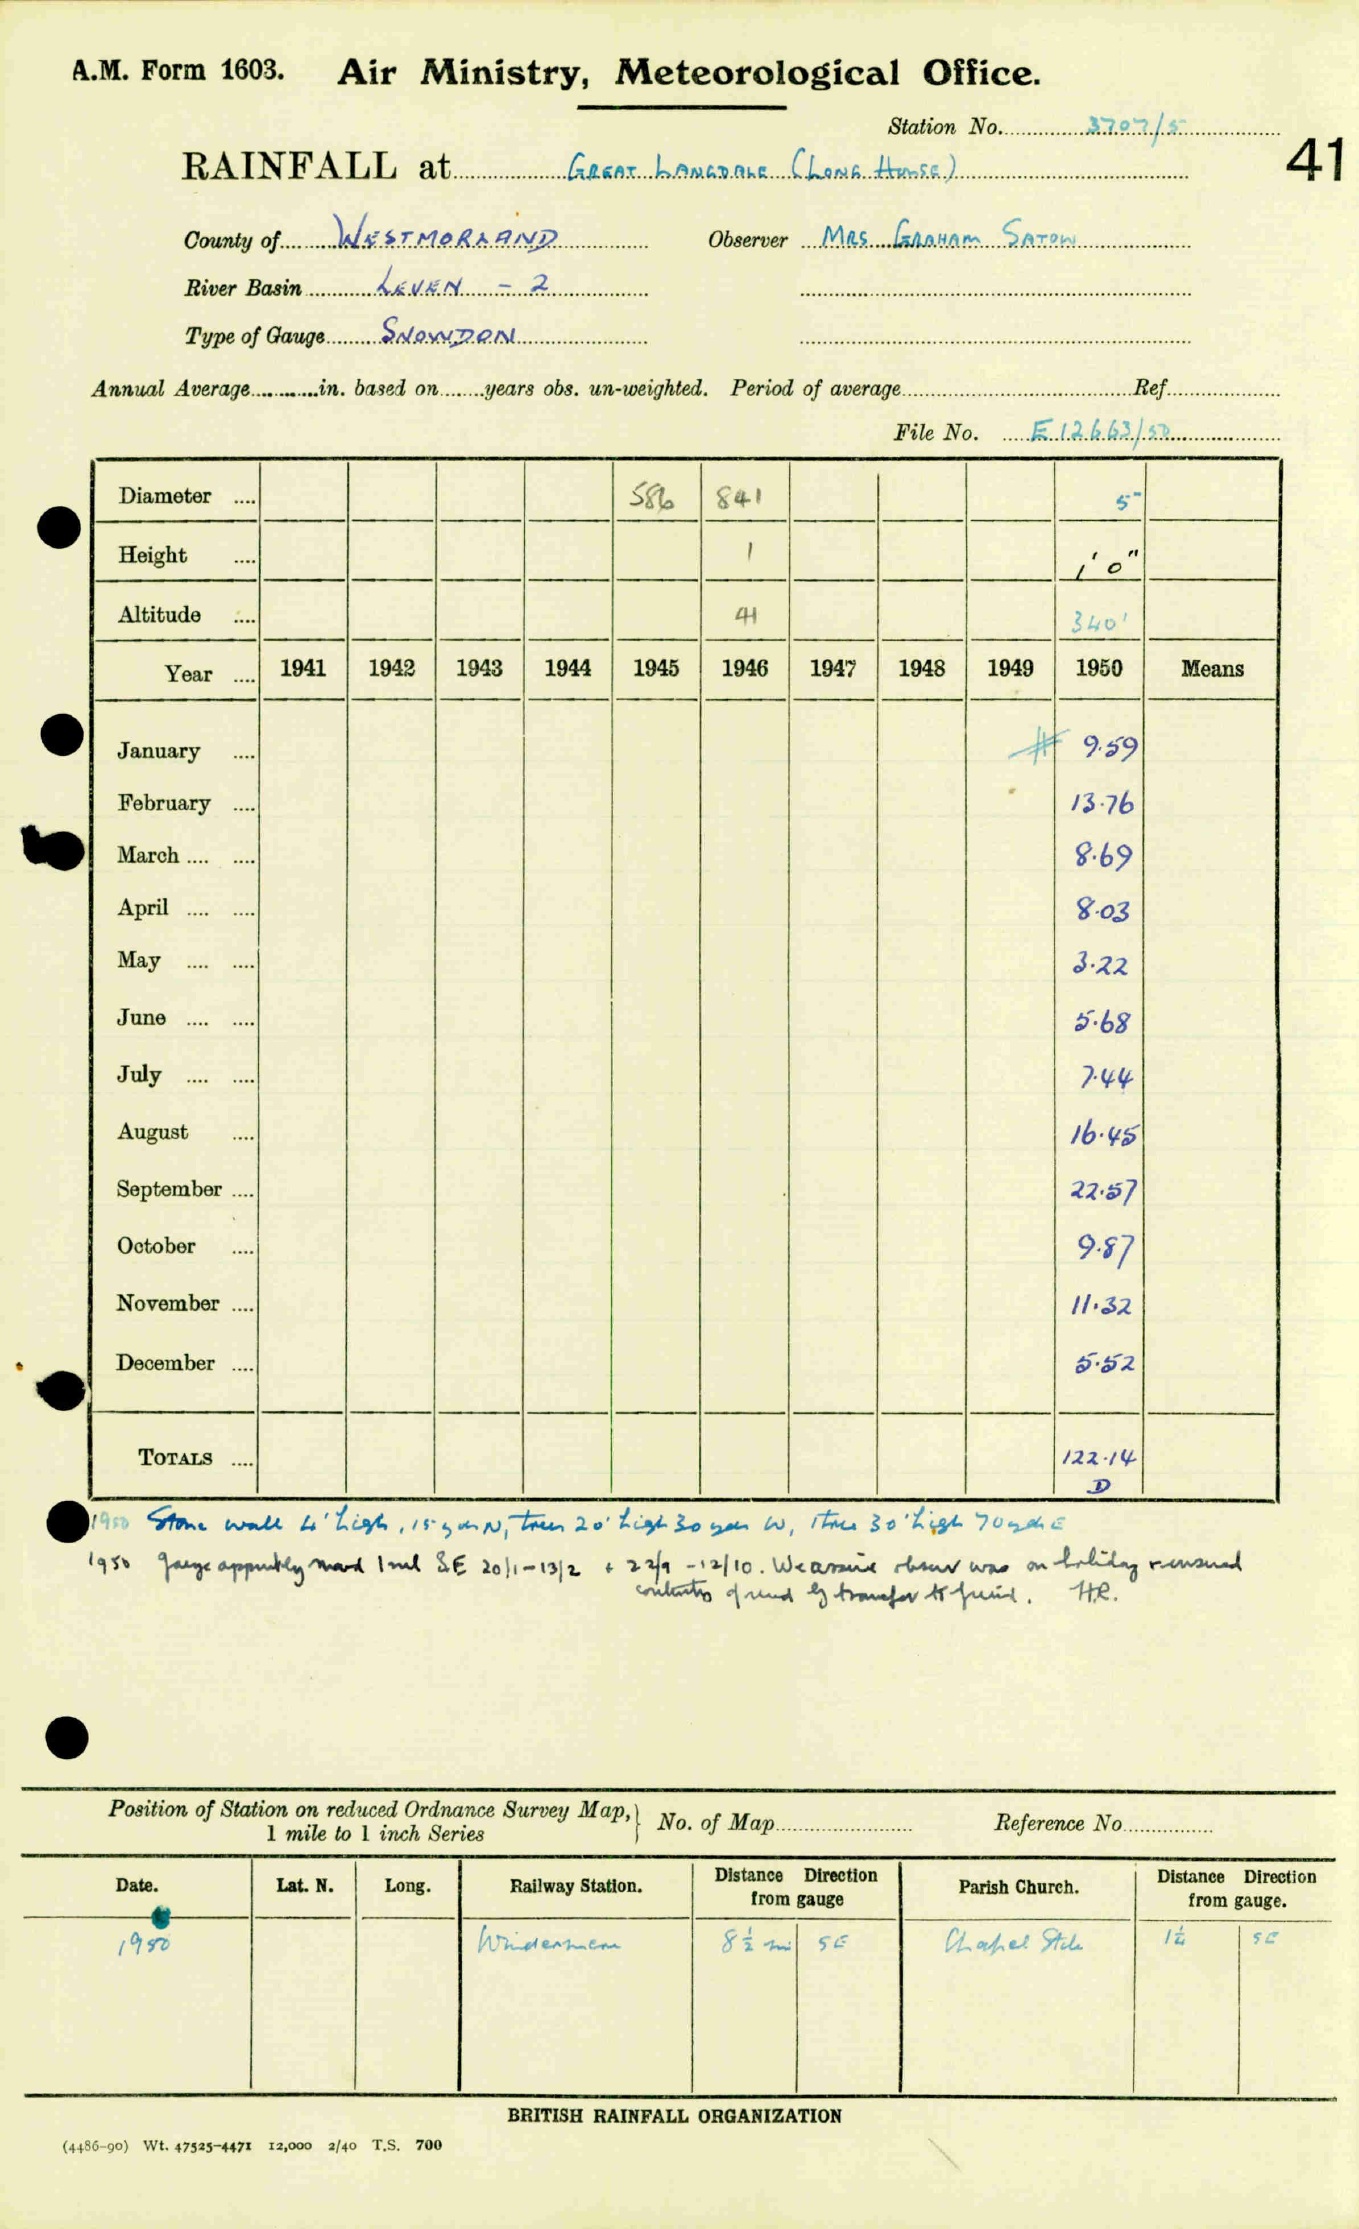 A.M. Form 1603. Air Ministry, Meteorological Office.
Station No. 3707/5
41
RAINFALL at GREAT LANGDALE (LONG HOUSE)
County of WESTMORLAND Observer MRS GRAHAM SATOW
River Basin LEVEN - 2
Type of Gauge SNOWDON
Annual Average in. based on years obs. un-weighted. Period of average Ref.
File No. E12663/50
Diameter 586 841 5"
Height 1 1' 0"
Altitude 41 340'
Year 1941 1942 1943 1944 1945 1946 1947 1948 1949 1950 Means
January # 9.59
February 13.76
March 8.69
April 8.03
May 3.22
June 5.68
July 7.44
August 16.45
September 22.57
October 9.87
November 11.32
December 5.52
TOTALS 122.14
D
1950 Stone wall 4' high, 15 yds N, trees 20' high 30 yds W, 1 tree 30' high 70 yds E
1950 gauge apparently moved 1 mile SE 20/1-13/2 + 22/9-12/10. We assume observer was on holiday &
contents by transfer to H.R.
Position of Station on reduced Ordnance Survey Map, } No. of Map Reference No.
1 mile to 1 inch Series
Date. Lat. N. Long. Railway Station. Distance Direction from gauge Parish Church. Distance Direction from gauge.
1950 Windermere 8½ mi SE Chapel Stile 1¼ SE
BRITISH RAINFALL ORGANIZATION
(4486-90) Wt. 47525-4471 12,000 2/40 T.S. 700